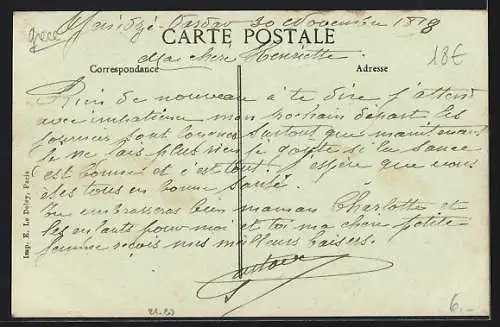 grece
30 Novembre 1918
CARTE POSTALE
18€
Ma chere Henriette.
Correspondance
Adresse
Rien de nouveau à te dire j'attend
avec impatience mon prochain départ les
journées sont longues surtout que maintenant
je ne fais plus rien je goute si la sauce
est bonne et c'est tout. J'espère que vous
etes tous en bonne santé.
Tu embrasseras bien maman Charlotte et
les enfants pour moi et toi ma chere petite
femme reçois mes meilleurs baisers.
Imp. E. Le Deley, Paris
6.-